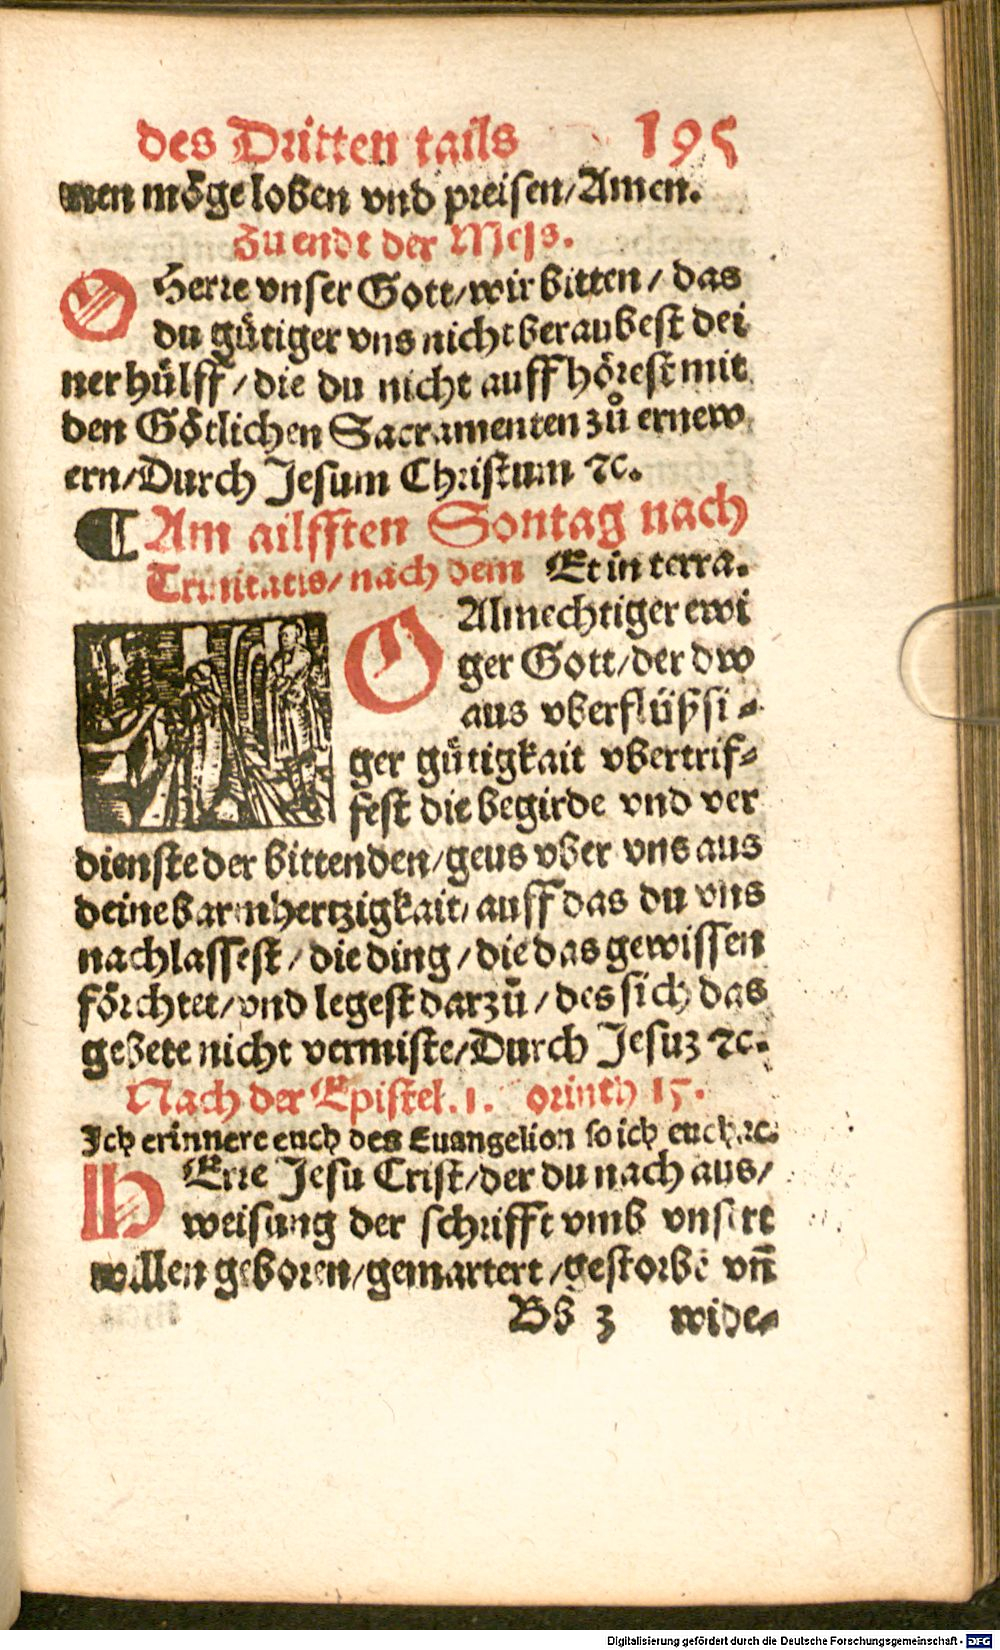 des Dritten tails 195
nen möge loben vnd preisen/Amen.
Zu endt der Mess.
O Herre vnser Gott/wir bitten/ das
du gütiger vns nicht beraubest dei
ner hülff/die du nicht auff hörest mit
den Götlichen Sacramenten zů ernew
ern/Durch Jesum Christum ⁊c.
¶ Am ailfften Sontag nach
Trinitatis/nach dem Et in terra.
O Almechtiger ewi
ger Gott/der dw
aus vberflüßsi-
ger gütigkait vbertrif-
fest die begirde vnd ver
dienste der bittenden/geus vber vns aus
deine barmhertzigkait/auff das du vns
nachlassest/die ding/die das gewissen
förchtet/vnd legest darzů/des sich das
gebete nicht vermiste/Durch Jesuz ⁊c.
Nach der Epistel. 1. orinth 15.
Ich erinnere euch des Euangelion so ich euch ⁊c.
HErre Jesu Crist/der du nach aus/
weisung der schrifft vmb vnsere
willen geboren/gemartert/gestorbē vn̄
Bb 3 wide-
Digitalisierung gefördert durch die Deutsche Forschungsgemeinschaft - DFG